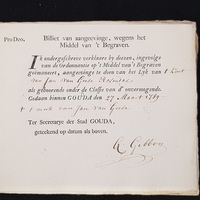 Pro Deo.
Billiet van aangeevinge, wegens het
Middel van 't Begraven.
IK ondergeschreve verklaare by deezen, ingevolge
van de Ordonnantie op 't Middel van 't Begraven
geëmaneert, aangeevinge te doen van het Lyk van 't kint
van Jan van
als gehoorende onder de Classe van d' onvermogende.
Gedaan binnen GOUDA den 27 Maart 1769
van Jan van
Ter Secretarye der Stad GOUDA,
geteekend op datum als boven.